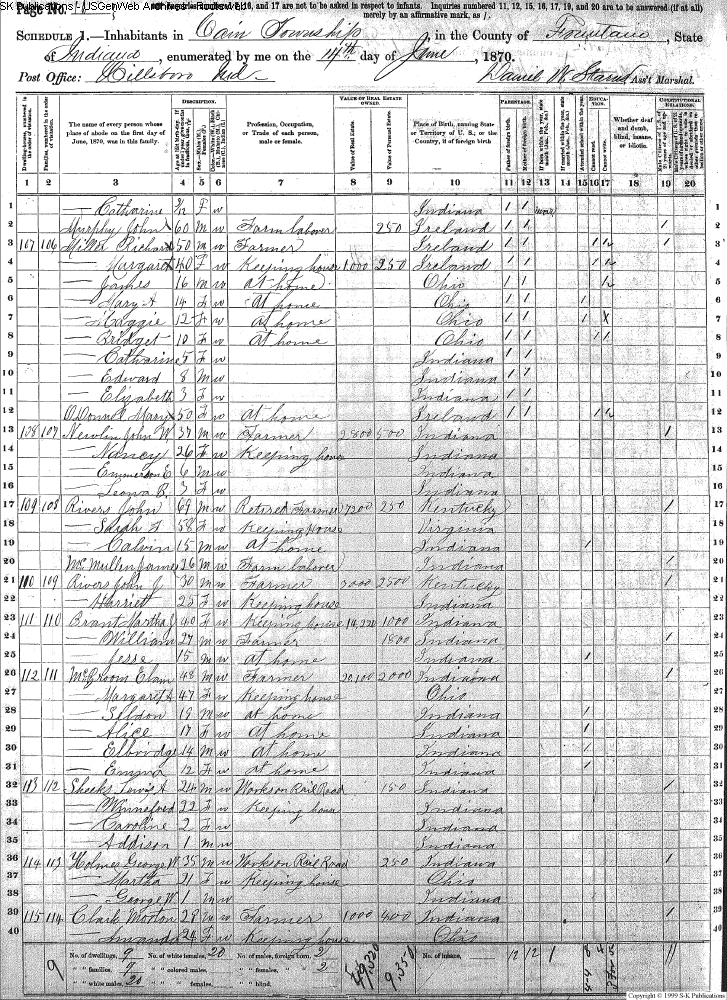 SK Publications - USGenWeb Archives
Page No.
Inquiries numbered 7, 16, and 17 are not to be asked in respect to infants. Inquiries numbered 11, 12, 15, 16, 17, 19, and 20 are to be answered (if at all)
merely by an affirmative mark, as /.
SCHEDULE 1.—Inhabitants in Cain Township, in the County of Fountain, State
of Indiana, enumerated by me on the 14th day of June, 1870.
Post Office: Hillsboro Ind. Ass't Marshal.
DESCRIPTION. VALUE OF REAL ESTATE OWNED. PARENTAGE. EDUCATION. CONSTITUTIONAL RELATIONS.
The name of every person whose place of abode on the first day of June, 1870, was in this family.
Profession, Occupation, or Trade of each person, male or female.
Value of Real Estate.
Value of Personal Estate.
Place of Birth, naming State or Territory of U. S.; or the Country, if of foreign birth.
Father of foreign birth.
Mother of foreign birth.
Attended school within the year.
Cannot read.
Cannot write.
Whether deaf and dumb, blind, insane, or idiotic.
1 2 3 4 5 6 7 8 9 10 11 12 13 14 15 16 17 18 19 20
1 — Catharine 2/12 F W Indiana / / 1
2 Murphy John 60 M W Farm laborer 250 Ireland / / / 2
3 107 106 Miller Richard 50 M W Farmer Ireland / / / / / 3
4 — Margaret 40 F W Keeping house 1000 250 Ireland / / / / 4
5 — James 16 M W At home Ohio / / / 5
6 — Mary A 14 F W At home Ohio / / / 6
7 — Maggie 12 F W At home Ohio / / / X 7
8 — Bridget 10 F W At home Ohio / / / / 8
9 — Catharine 5 F W Indiana / / 9
10 — Edward 8 M W Indiana / / 10
11 — Elizabeth 3 F W Indiana / / 11
12 O'Donnel Mary 50 F W At home Ireland / / / / 12
13 108 107 Newlin John W 37 M W Farmer 2800 500 Indiana / 13
14 — Nancy 26 F W Keeping house Indiana 14
15 — Emmerson E 6 M W Indiana 15
16 — Leona B. 3 F W Indiana 16
17 109 108 Rivers John 69 M W Retired Farmer 7200 250 Kentucky / 17
18 — Sarah F 58 F W Keeping House Virginia 18
19 — Calvin 15 M W At home Indiana / 19
20 McMullen James 26 M W Farm laborer Indiana / 20
21 110 109 Rivers John J 30 M W Farmer 3000 2500 Kentucky / 21
22 — Harriet 25 F W Keeping house Indiana 22
23 111 110 Brant Martha J 40 F W Keeping house 14,220 1000 Indiana 23
24 — William 27 M W Farmer 1800 Indiana / 24
25 — Jesse 15 M W At home Indiana / 25
26 112 111 McBroom Elam 48 M W Farmer 20,100 2000 Indiana / 26
27 — Margaret A 47 F W Keeping house Ohio 27
28 — Selldon 19 M W At home Indiana / 28
29 — Alice 17 F W At home Indiana / 29
30 — Elbridge 14 M W At home Indiana / 30
31 — Emma 12 F W At home Indiana / 31
32 113 112 Sheeks Lewis A 24 M W Works on Rail Road 150 Indiana / 32
33 — Winneford 22 F W Keeping house Indiana 33
34 — Caroline 2 F W Indiana 34
35 — Addison 1 M W Indiana 35
36 114 113 Holmes George W 35 M W Works on Rail Road 250 Indiana / 36
37 — Martha 21 F W Keeping house Ohio 37
38 — George W. 1 M W Indiana 38
39 115 114 Clark Morton 28 M W Farmer 1000 400 Indiana / 39
40 — Amanda 24 F W Keeping house Ohio 40
No. of dwellings, 9 No. of white females, 20 No. of males, foreign born, 2 No. of insane, 12 12 1
" " families, 9 " " colored males, " " females, " " 2
" " white males, 20 " " " females, " " blind,
9 9,350
Copyright © 1999 S-K Publications